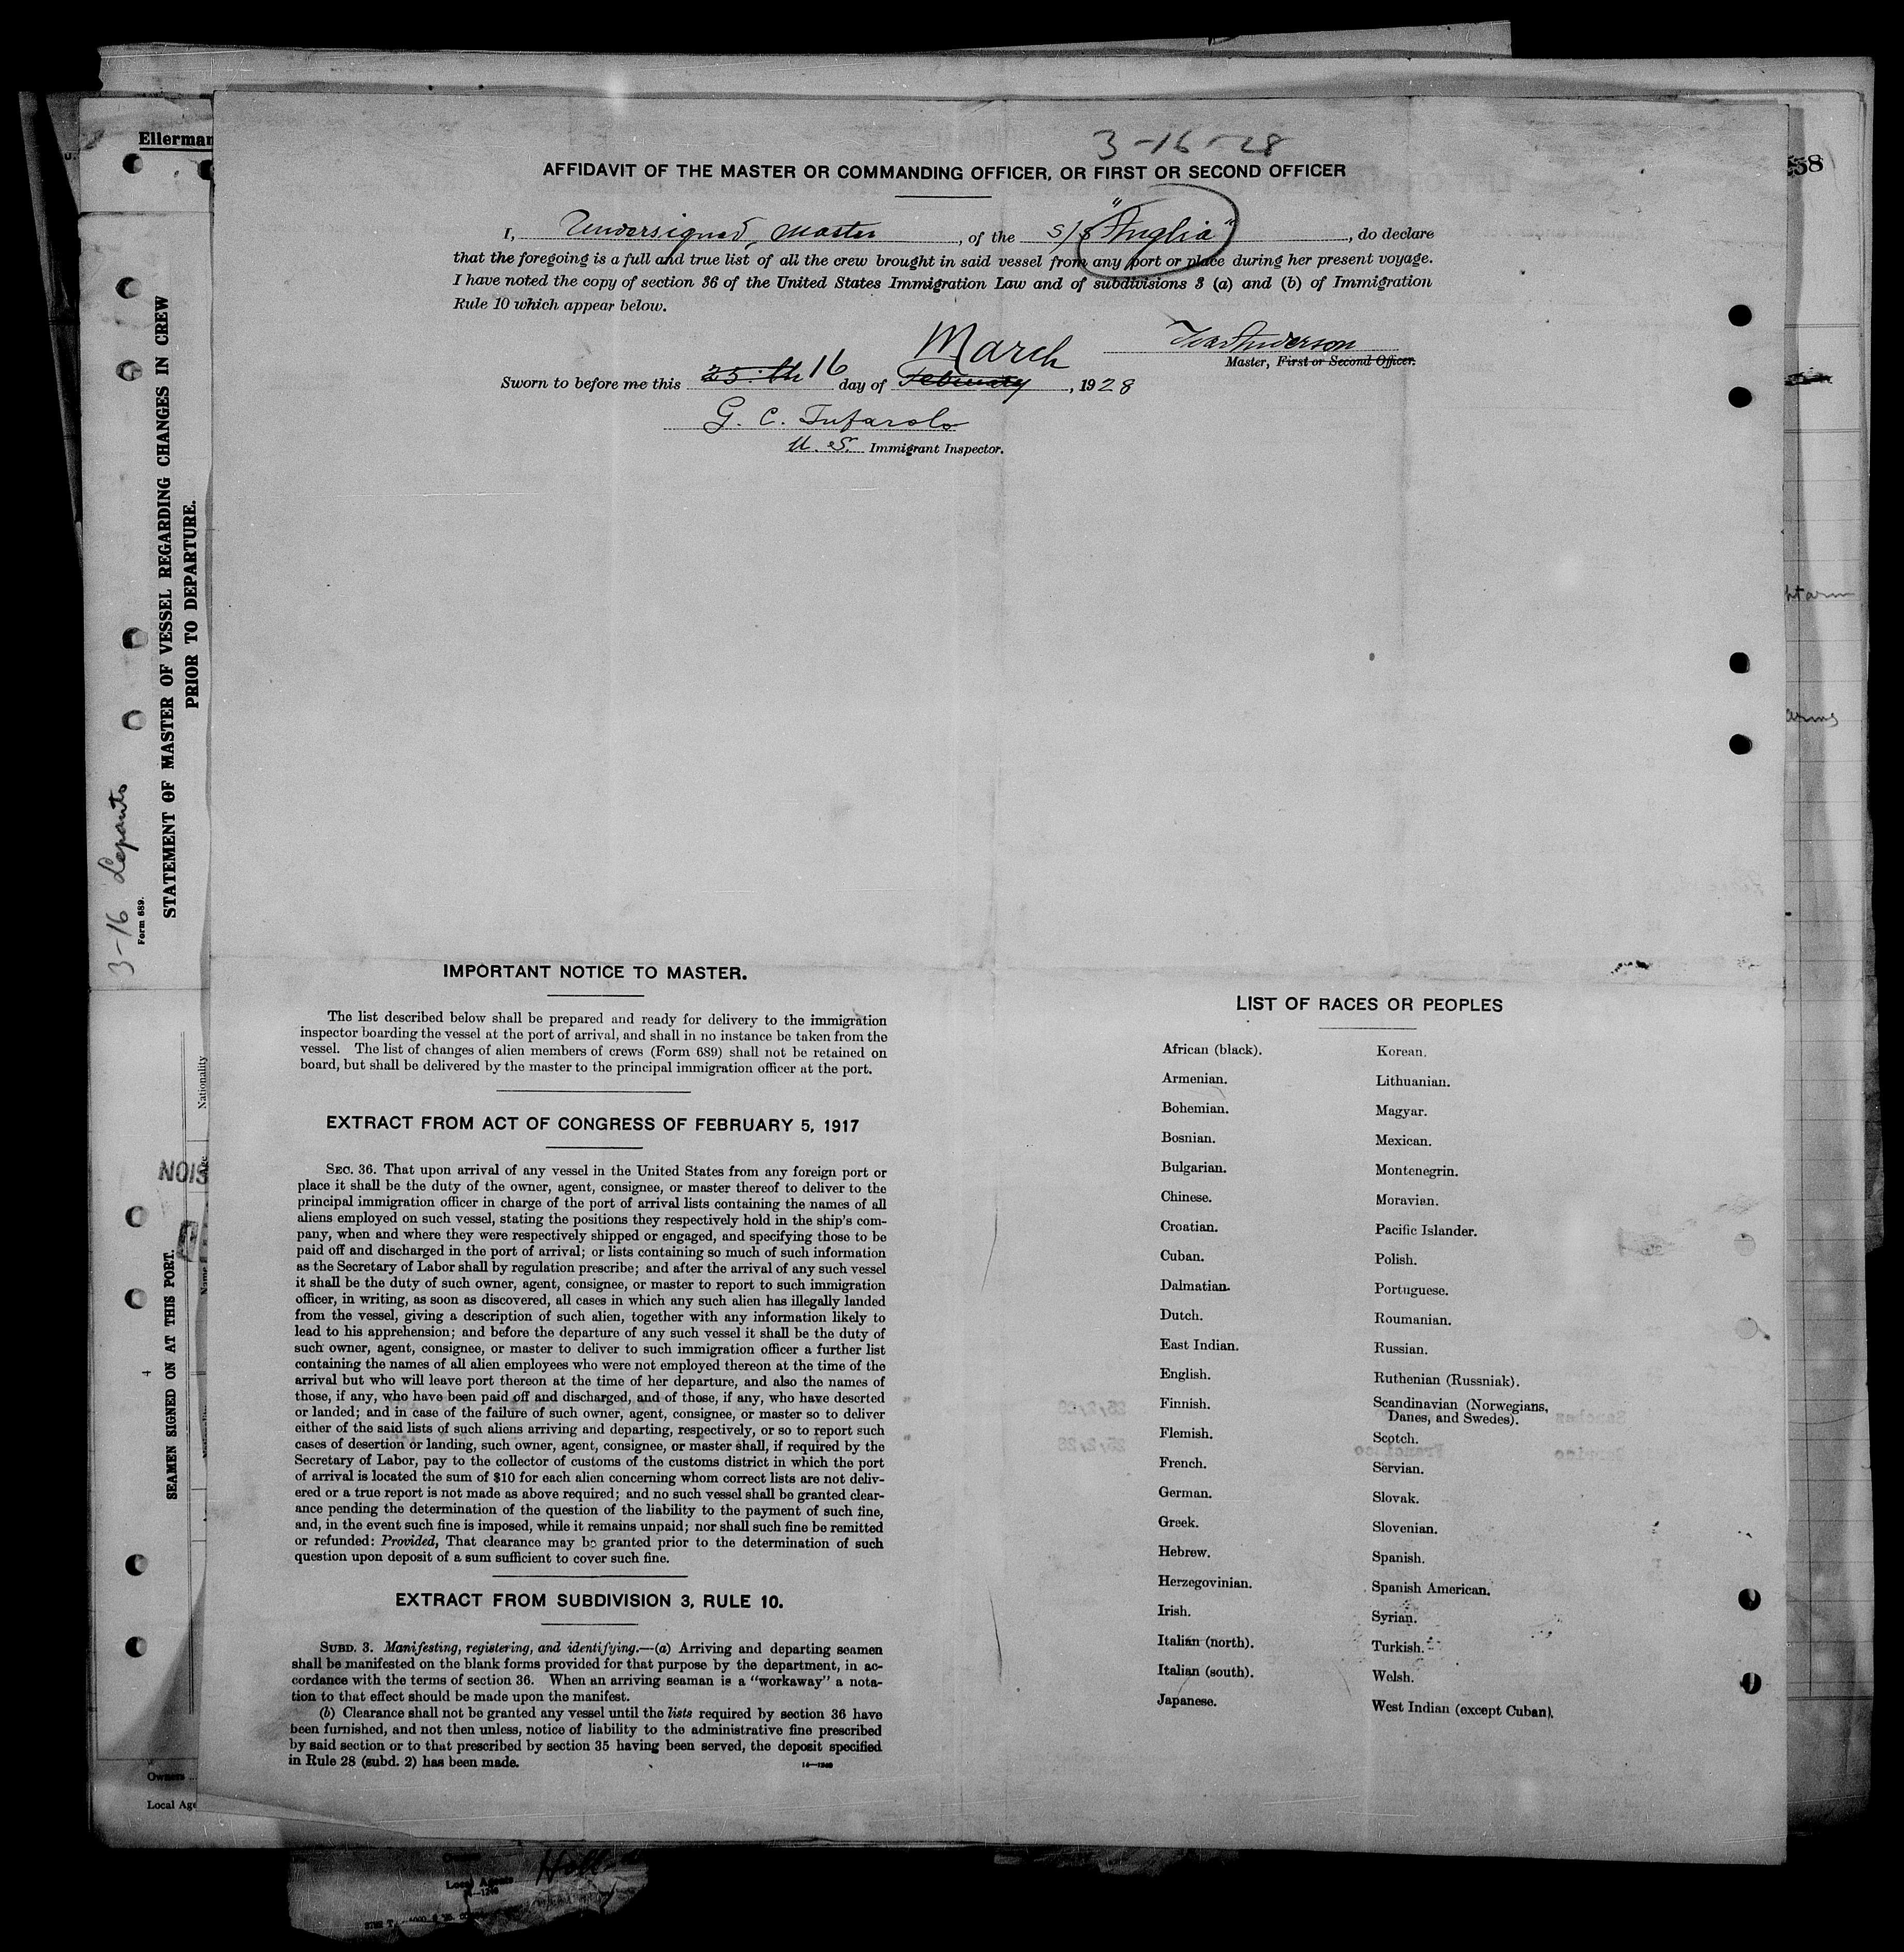 3-16-28
AFFIDAVIT OF THE MASTER OR COMMANDING OFFICER, OR FIRST OR SECOND OFFICER
I, Undersigned, Master, of the S/S "Anglia", do declare
that the foregoing is a full and true list of all the crew brought in said vessel from any port or place during her present voyage.
I have noted the copy of section 36 of the United States Immigration Law and of subdivisions 3 (a) and (b) of Immigration
Rule 10 which appear below.
Master, First or Second Officer.
March
Sworn to before me this 25:th 16 day of February, 1928
G. C. Tufarolo
U. S. Immigrant Inspector.
IMPORTANT NOTICE TO MASTER.
The list described below shall be prepared and ready for delivery to the immigration
inspector boarding the vessel at the port of arrival, and shall in no instance be taken from the
vessel. The list of changes of alien members of crews (Form 689) shall not be retained on
board, but shall be delivered by the master to the principal immigration officer at the port.
EXTRACT FROM ACT OF CONGRESS OF FEBRUARY 5, 1917
SEC. 36. That upon arrival of any vessel in the United States from any foreign port or
place it shall be the duty of the owner, agent, consignee, or master thereof to deliver to the
principal immigration officer in charge of the port of arrival lists containing the names of all
aliens employed on such vessel, stating the positions they respectively hold in the ship's com-
pany, when and where they were respectively shipped or engaged, and specifying those to be
paid off and discharged in the port of arrival; or lists containing so much of such information
as the Secretary of Labor shall by regulation prescribe; and after the arrival of any such vessel
it shall be the duty of such owner, agent, consignee, or master to report to such immigration
officer, in writing, as soon as discovered, all cases in which any such alien has illegally landed
from the vessel, giving a description of such alien, together with any information likely to
lead to his apprehension; and before the departure of any such vessel it shall be the duty of
such owner, agent, consignee, or master to deliver to such immigration officer a further list
containing the names of all alien employees who were not employed thereon at the time of the
arrival but who will leave port thereon at the time of her departure, and also the names of
those, if any, who have been paid off and discharged, and of those, if any, who have deserted
or landed; and in case of the failure of such owner, agent, consignee, or master so to deliver
either of the said lists of such aliens arriving and departing, respectively, or so to report such
cases of desertion or landing, such owner, agent, consignee, or master shall, if required by the
Secretary of Labor, pay to the collector of customs of the customs district in which the port
of arrival is located the sum of $10 for each alien concerning whom correct lists are not deliv-
ered or a true report is not made as above required; and no such vessel shall be granted clear-
ance pending the determination of the question of the liability to the payment of such fine,
and, in the event such fine is imposed, while it remains unpaid; nor shall such fine be remitted
or refunded: Provided, That clearance may be granted prior to the determination of such
question upon deposit of a sum sufficient to cover such fine.
EXTRACT FROM SUBDIVISION 3, RULE 10.
SUBD. 3. Manifesting, registering, and identifying.—(a) Arriving and departing seamen
shall be manifested on the blank forms provided for that purpose by the department, in ac-
cordance with the terms of section 36. When an arriving seaman is a "workaway" a nota-
tion to that effect should be made upon the manifest.
(b) Clearance shall not be granted any vessel until the lists required by section 36 have
been furnished, and not then unless, notice of liability to the administrative fine prescribed
by said section or to that prescribed by section 35 having been served, the deposit specified
in Rule 28 (subd. 2) has been made.
LIST OF RACES OR PEOPLES
African (black).
Armenian.
Bohemian.
Bosnian.
Bulgarian.
Chinese.
Croatian.
Cuban.
Dalmatian.
Dutch.
East Indian.
English.
Finnish.
Flemish.
French.
German.
Greek.
Hebrew.
Herzegovinian.
Irish.
Italian (north).
Italian (south).
Japanese.
Korean.
Lithuanian.
Magyar.
Mexican.
Montenegrin.
Moravian.
Pacific Islander.
Polish.
Portuguese.
Roumanian.
Russian.
Ruthenian (Russniak).
Scandinavian (Norwegians,
Danes, and Swedes).
Scotch.
Servian.
Slovak.
Slovenian.
Spanish.
Spanish American.
Syrian.
Turkish.
Welsh.
West Indian (except Cuban).
Ellerman
3-16 Lepanto
Form 689.
STATEMENT OF MASTER OF VESSEL REGARDING CHANGES IN CREW
PRIOR TO DEPARTURE.
SEAMEN SIGNED ON AT THIS PORT.
Nationality
Age
Name
Owners
Local Age
Local Agents